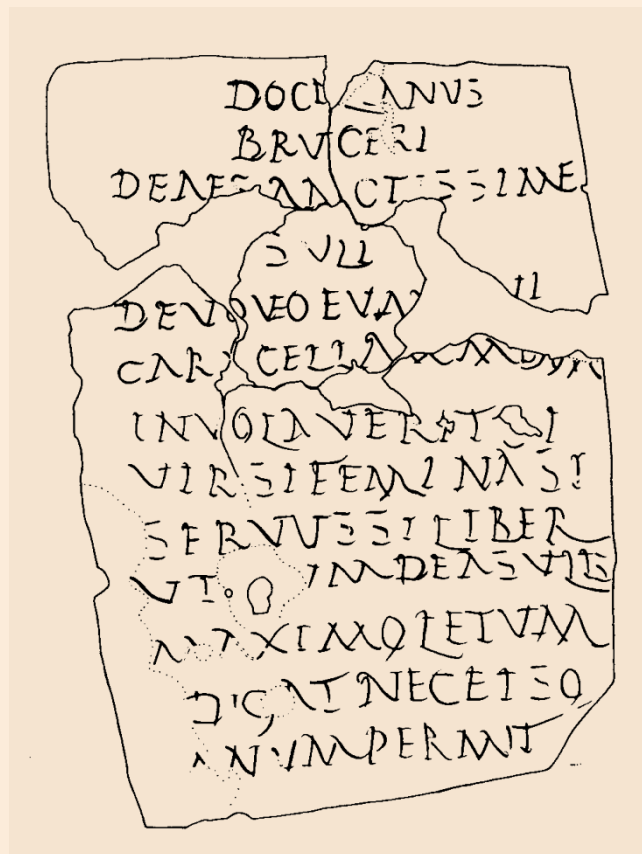 DOCILIANVS
BRVCERI
DEAE SANCTISSIME
SVLI
DEVOVEO EVM
CARACELLAM
INVOLAVERIT SI
VIR SI FEMINA SI
SERVVS SI LIBER
VT DEA SVLIS
MAXIMO LETVM
ADIGAT NEC EI SO
NVM PERMIT